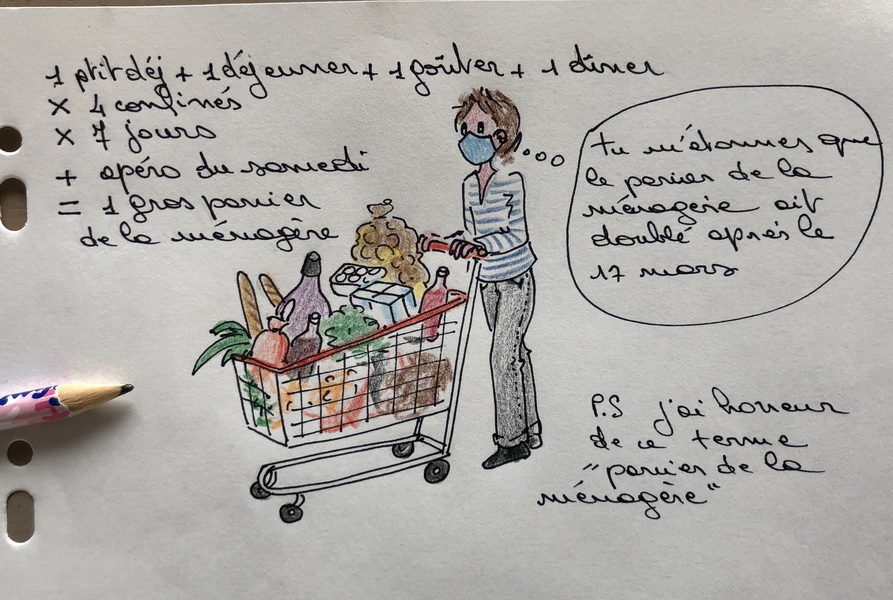 1 ptit déj + 1 déjeuner + 1 goûter + 1 dîner
x 4 confinés
x 7 jours
+ apéro du samedi
= 1 gros panier
de la ménagère
tu m'étonnes que
le panier de la
ménagerie ait
doublé après le
17 mars
P.S j'ai horreur
de ce terme
"panier de la
ménagère"